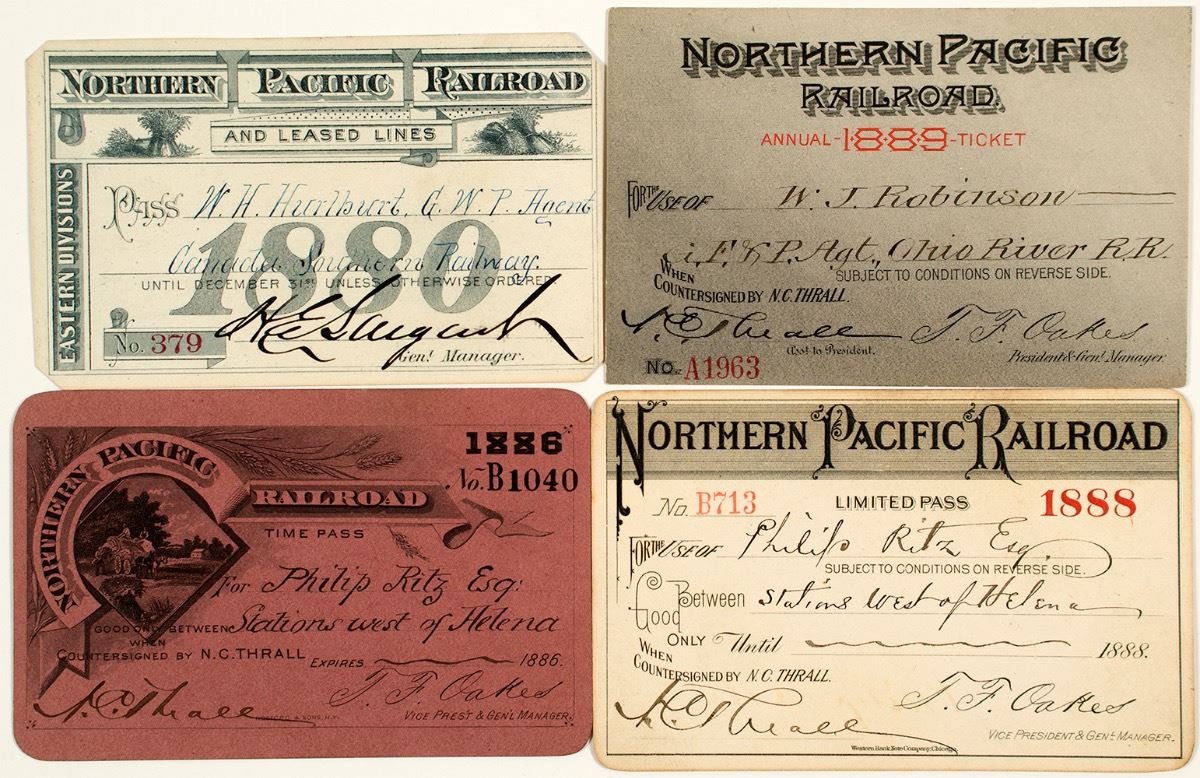 NORTHERN PACIFIC RAILROAD
AND LEASED LINES
EASTERN DIVISIONS
PASS W. H. Hurlburt, G. W. P. Agent
1880
Canada Southern Railway
UNTIL DECEMBER 31ST UNLESS OTHERWISE ORDERED.
No. 379
Genl. Manager.
NORTHERN PACIFIC
RAILROAD.
ANNUAL-1889-TICKET
FOR THE USE OF W. J. Robinson
F. & P. Agt., Ohio River R.R.
SUBJECT TO CONDITIONS ON REVERSE SIDE.
WHEN
COUNTERSIGNED BY N.C. THRALL.
N. C. Thrall T. F. Oakes
Asst. to President. President & Genl. Manager
No. A1963
1886
NORTHERN PACIFIC
No. B1040
RAILROAD
TIME PASS
For Philip Ritz Esq:
GOOD ONLY BETWEEN Stations west of Helena
WHEN
COUNTERSIGNED BY N.C. THRALL
EXPIRES 1886.
N. C. Thrall T. F. Oakes
VICE PREST & GENL MANAGER.
NORTHERN PACIFIC RAILROAD
No. B713 LIMITED PASS 1888
FOR THE USE OF Philip Ritz Esq
SUBJECT TO CONDITIONS ON REVERSE SIDE.
Good Between Stations west of Helena
ONLY Until 1888.
WHEN
COUNTERSIGNED BY N.C. THRALL.
N. C. Thrall T. F. Oakes
VICE PRESIDENT & GENL. MANAGER.
Western Bank Note Company, Chicago.